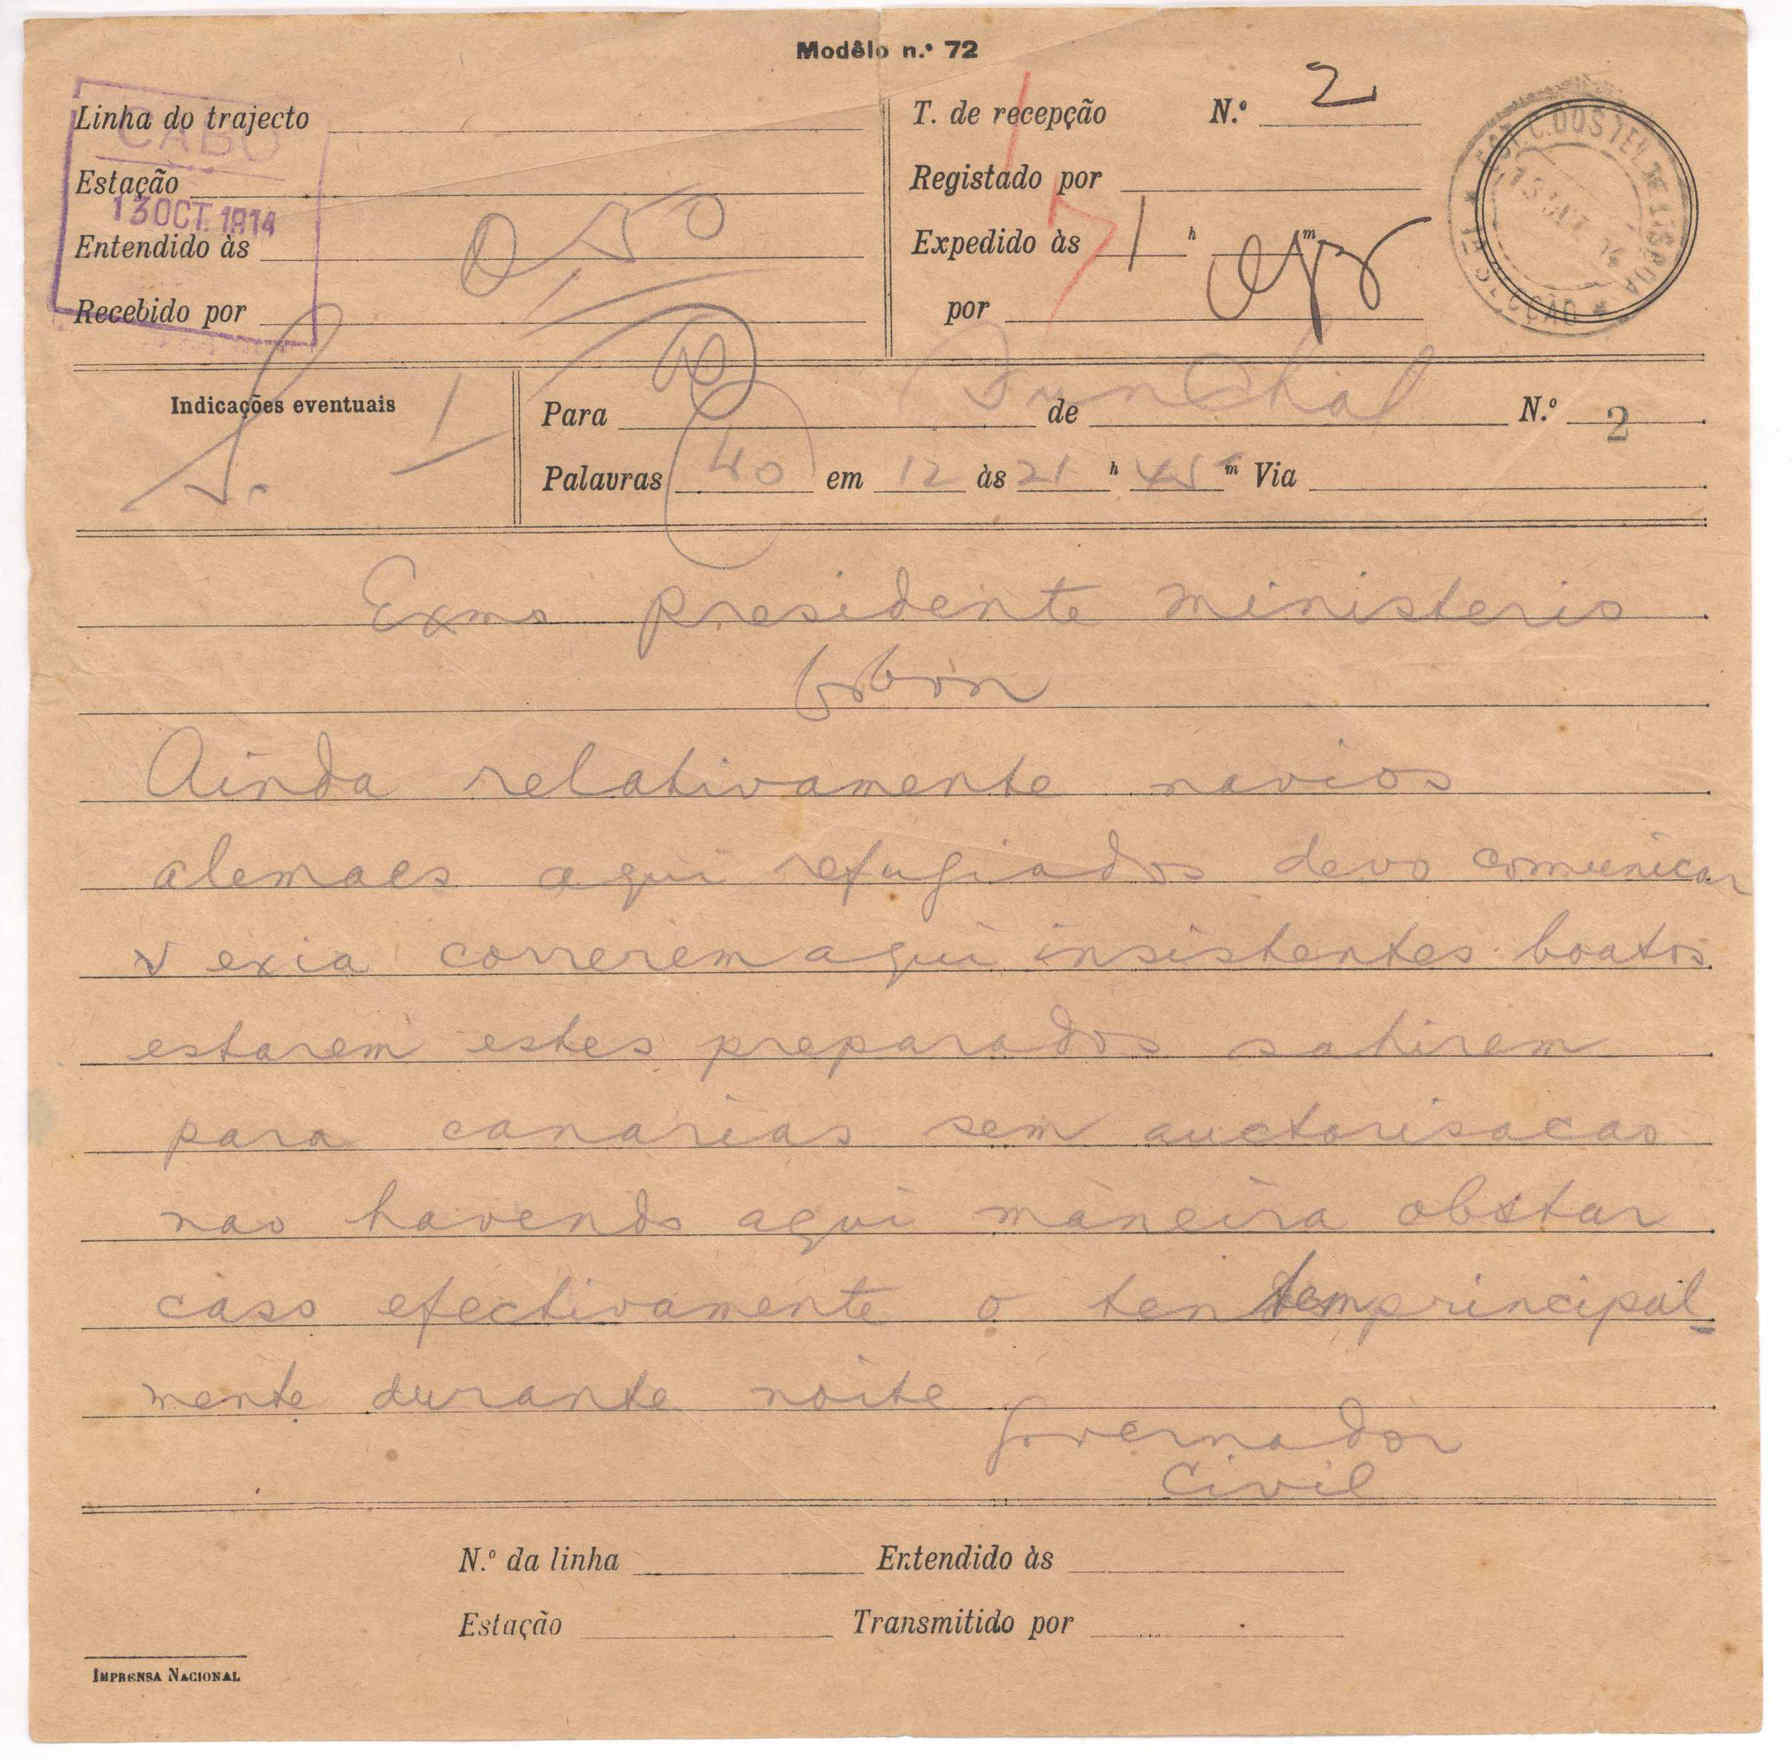 Modêlo n.º 72
Linha do trajecto
CABO
Estação
13 OCT. 1914
Entendido às 0 50
Recebido por
T. de recepção N.º 2
Registado por
Expedido às 1 h m
por
Indicações eventuais
Para de Funchal N.º 2
Palavras 40 em 12 às 21 h 45 m Via
Exmo presidente ministerio
Lsbon
Ainda relativamente navios
alemaes aqui refugiados devo comunicar
v exia correrem aqui insistentes boatos
estarem estes preparados sahirem
para canarias sem auctorisacao
nao havendo aqui maneira obstar
caso efectivamente o tentem principal-
mente durante noite
Governador
Civil
N.º da linha Entendido às
Estação Transmitido por
IMPRENSA NACIONAL